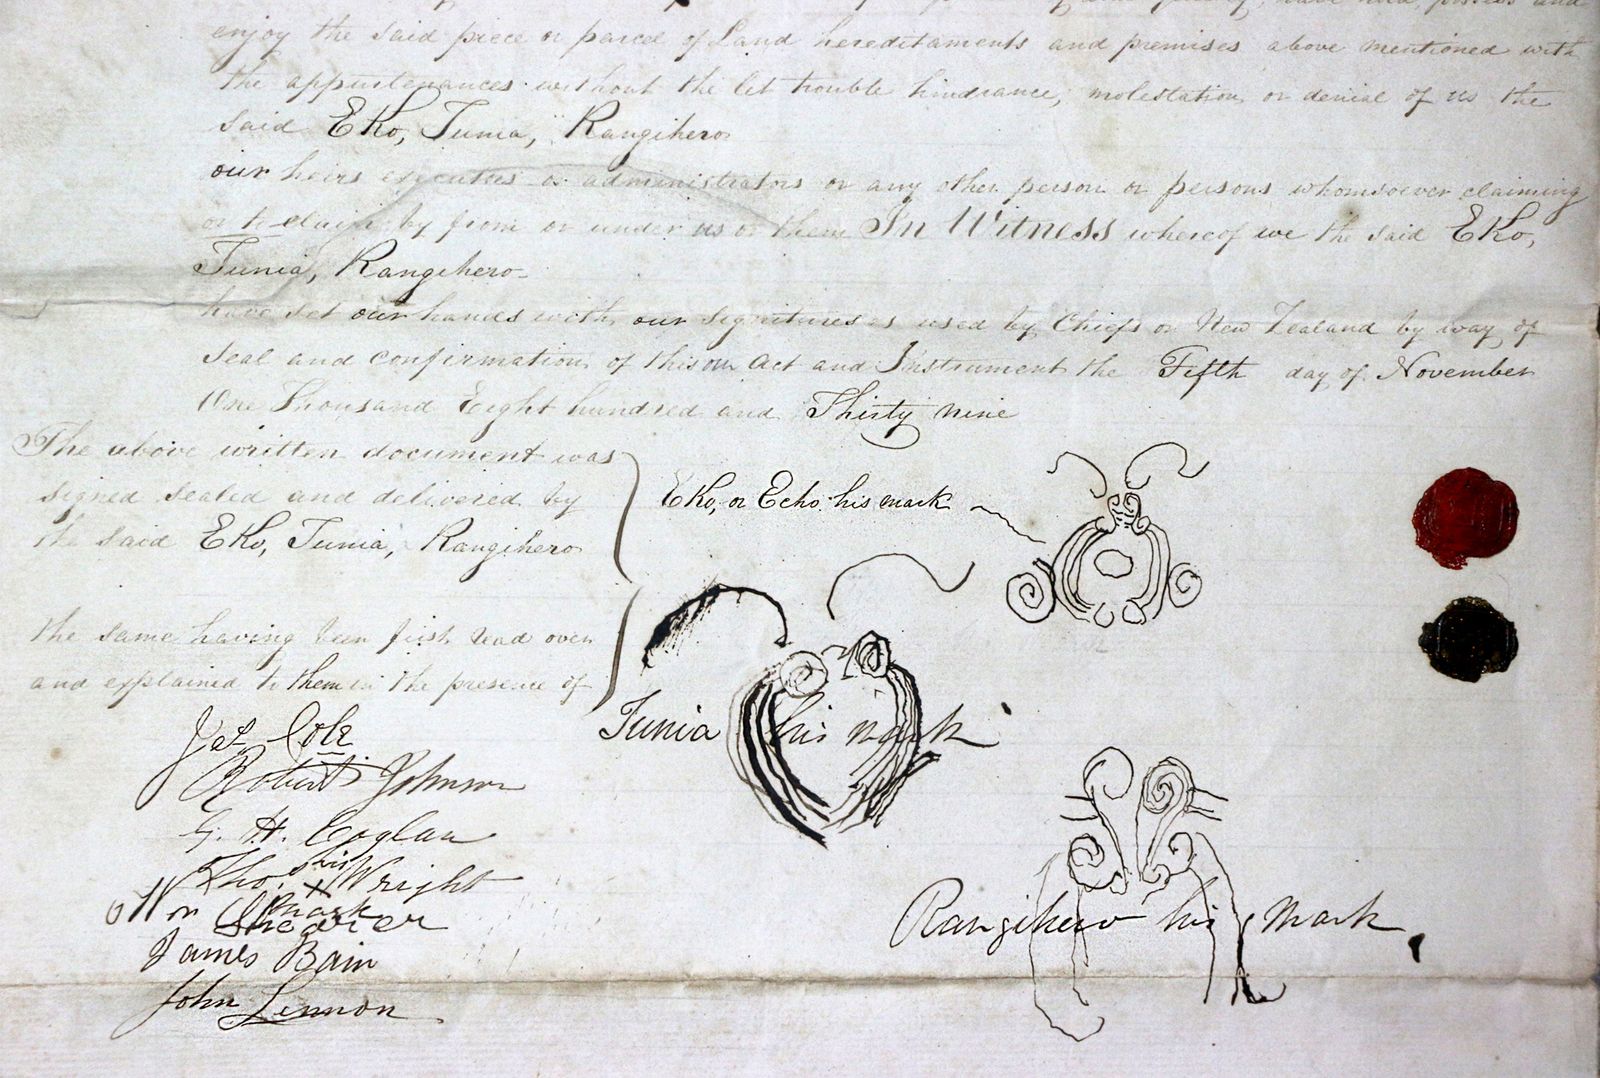 enjoy the said piece or parcel of Land hereditaments and premises above mentioned with
the appurtenances without the let trouble hindrance, molestation or denial of us the
said EKo, Tunia, Rangihero
our heirs executors or administrators or any other person or persons whomsoever claiming
or to claim by from or under us or them In Witness whereof we the said EKo,
Tunia, Rangihero
have set our hands with our signitures as used by Chiefs of New Zealand by way of
seal and confirmation of this our Act and Instrument the Fifth day of November
One Thousand Eight hundred and Thirty nine
The above written document was
signed sealed and delivered by
the said EKo, Tunia, Rangihero
EKo, or Echo his mark
the same having been first read over
and explained to them in the presence of
Tunia his mark
Rangihero his mark
Cole
Robert Johnson
G. H. Coglan
Tho.s Wright
his
x
mark
Wm Shearer
James Bain
John Lennon